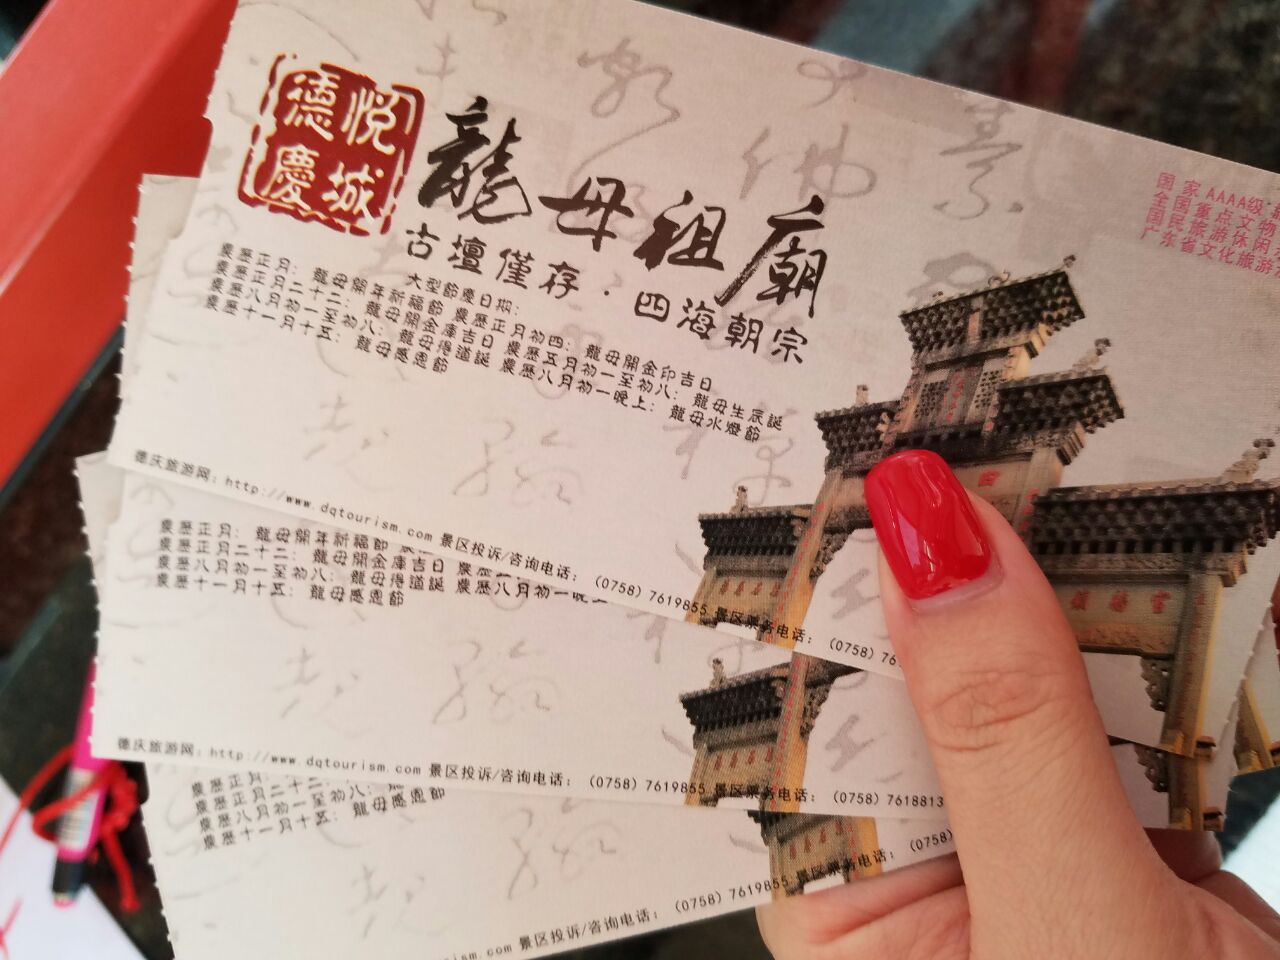 德慶
悦城
龍母祖廟
古壇僅存·四海朝宗
国家AAAA级
全国重点文物
国民旅游休闲
广东省文化旅游
大型節慶日期：
農歷正月：龍母開年祈福節 農歷正月初四：龍母開金印吉日
農歷正月二十二：龍母開金庫吉日 農歷五月初一至初八：龍母生辰誕
農歷八月初一至初八：龍母得道誕 農歷八月初一晚上：龍母水燈節
農歷十一月十五：龍母感恩節
德庆旅游网：http://www.dqtourism.com 景区投诉/咨询电话：（0758）7619855 景区票务电话：（0758）76
農歷正月：龍母開年祈福節 農歷
農歷正月二十二：龍母開金庫吉日 農歷
農歷八月初一至初八：龍母得道誕 農歷八月初一晚上
農歷十一月十五：龍母感恩節
德庆旅游网：http://www.dqtourism.com 景区投诉/咨询电话：（0758）7619855 景区票务电话：（0758）7618813
農歷正月：
農歷正月二十二
農歷八月初一至初八：
農歷十一月十五：龍母感恩節
ism.com 景区投诉/咨询电话：（0758）7619855 景区票务电话：（0758）